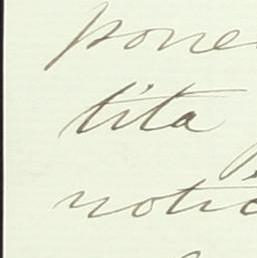 pone
tita
notic